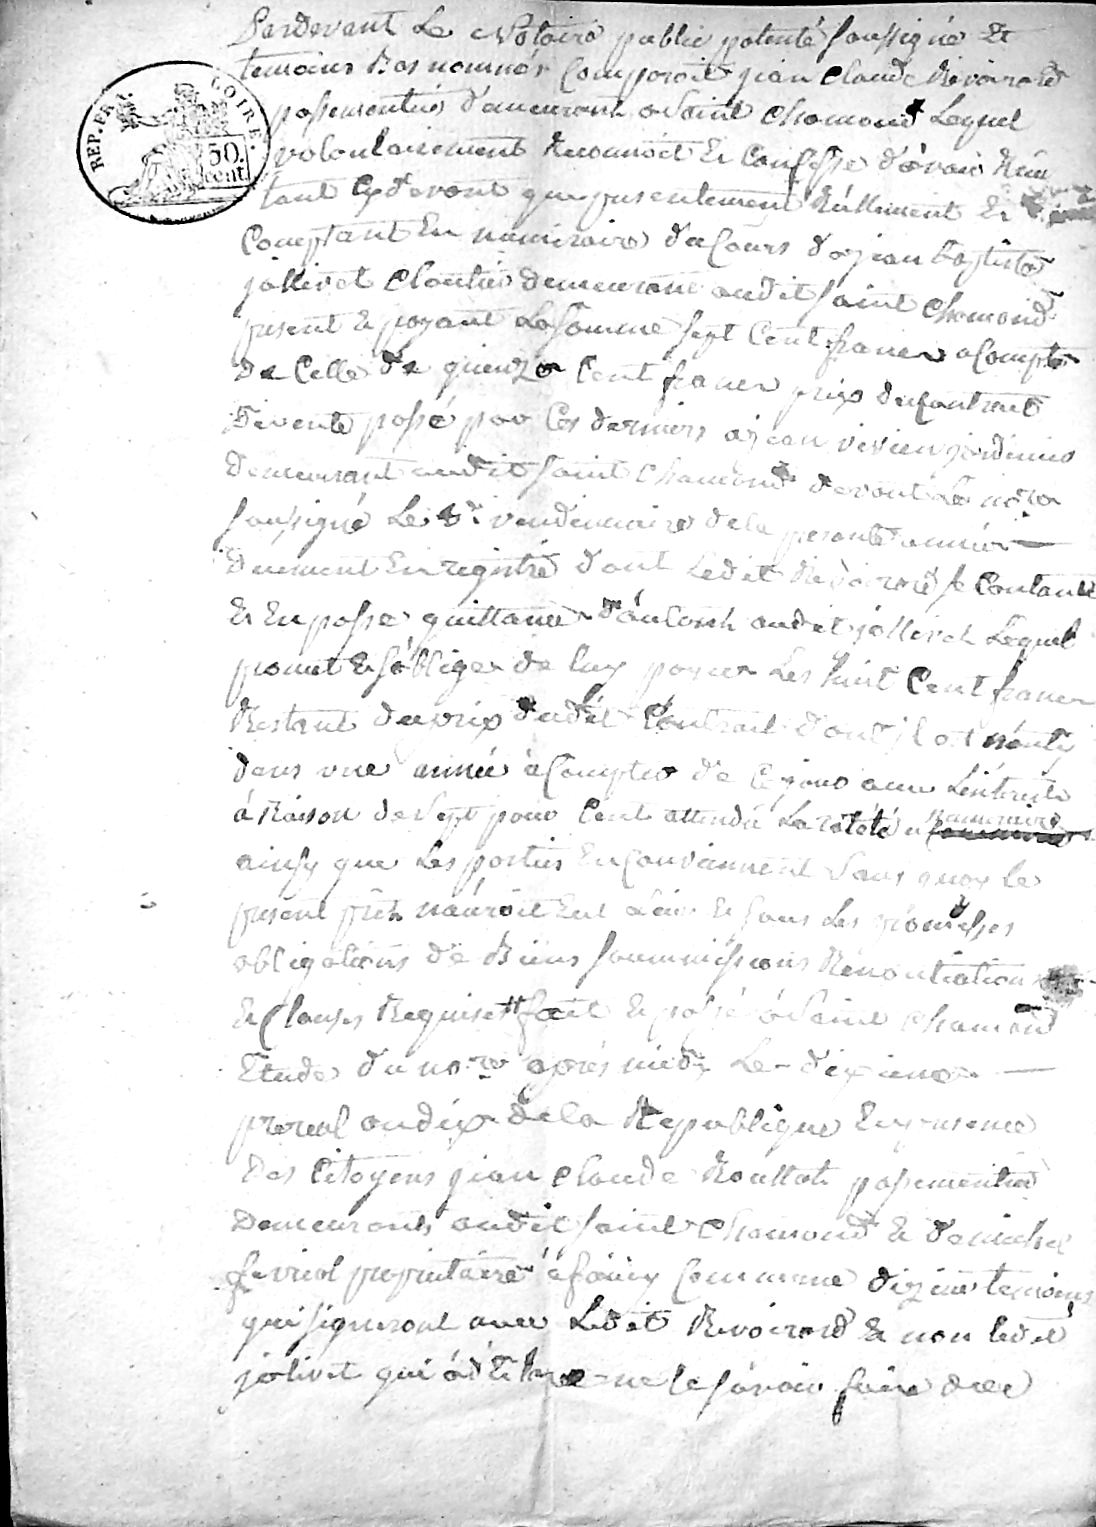 Pardevant Le Notaire public patenté soussigné Et
temoins Bas nommés Comparoit jean Claude Rivoirard
passementier demeurant a Saint chamond Lequel
REP. FRA. GOIRE.
50. cent.
volontairement Reconnoit Et Confesse d'avoir Reçu
tant Cy devant que presentement Réellement Et
Comptant En numeraire du Cours de jean baptiste
jollivet Cloutier demeurant audit saint Chamond
present Et payant La somme sept Cent francs a Compte
De Celle de quinze Cent francs prix du Contrat
De vente passé par Ces derniers a jean vivien jardinier
demeurant audit saint Chamond devant Le nore
soussigné Le vendemiaire de la presente année
Duement Enregistré dont Ledit Rivoirard se Contante
Et En passe quittance d'autant audit jollivet Lequel
promet Et s'oblige de luy payer Les huit Cent francs
Restant du prix dudit Contrat dont il est nanty
dans une année à Compter de Ce jour avec L'interets
à Raison de sept pour Cent attendu La rareté du numeraire
ainsy que Les parties En Conviennent Sans quoy le
present prêt n'auroit Eut Lieu Et sous Les promesses
obligations de Biens soummissions Renontiations
Et Clauses Requises fait Et passé à Saint Chamond
Etude du nore après midy Le dixieme
prereal an dix de la Republique En presence
Des Citoyens jean Claude Roullat passementier
Demeurants audit saint Chamond Et de michel
fevrial proprietaire à commune d'izieu temoins
qui signeront avec Ledit Rivoirard Et non ledit
jolivet qui a déclare ne le savoir faire de ce